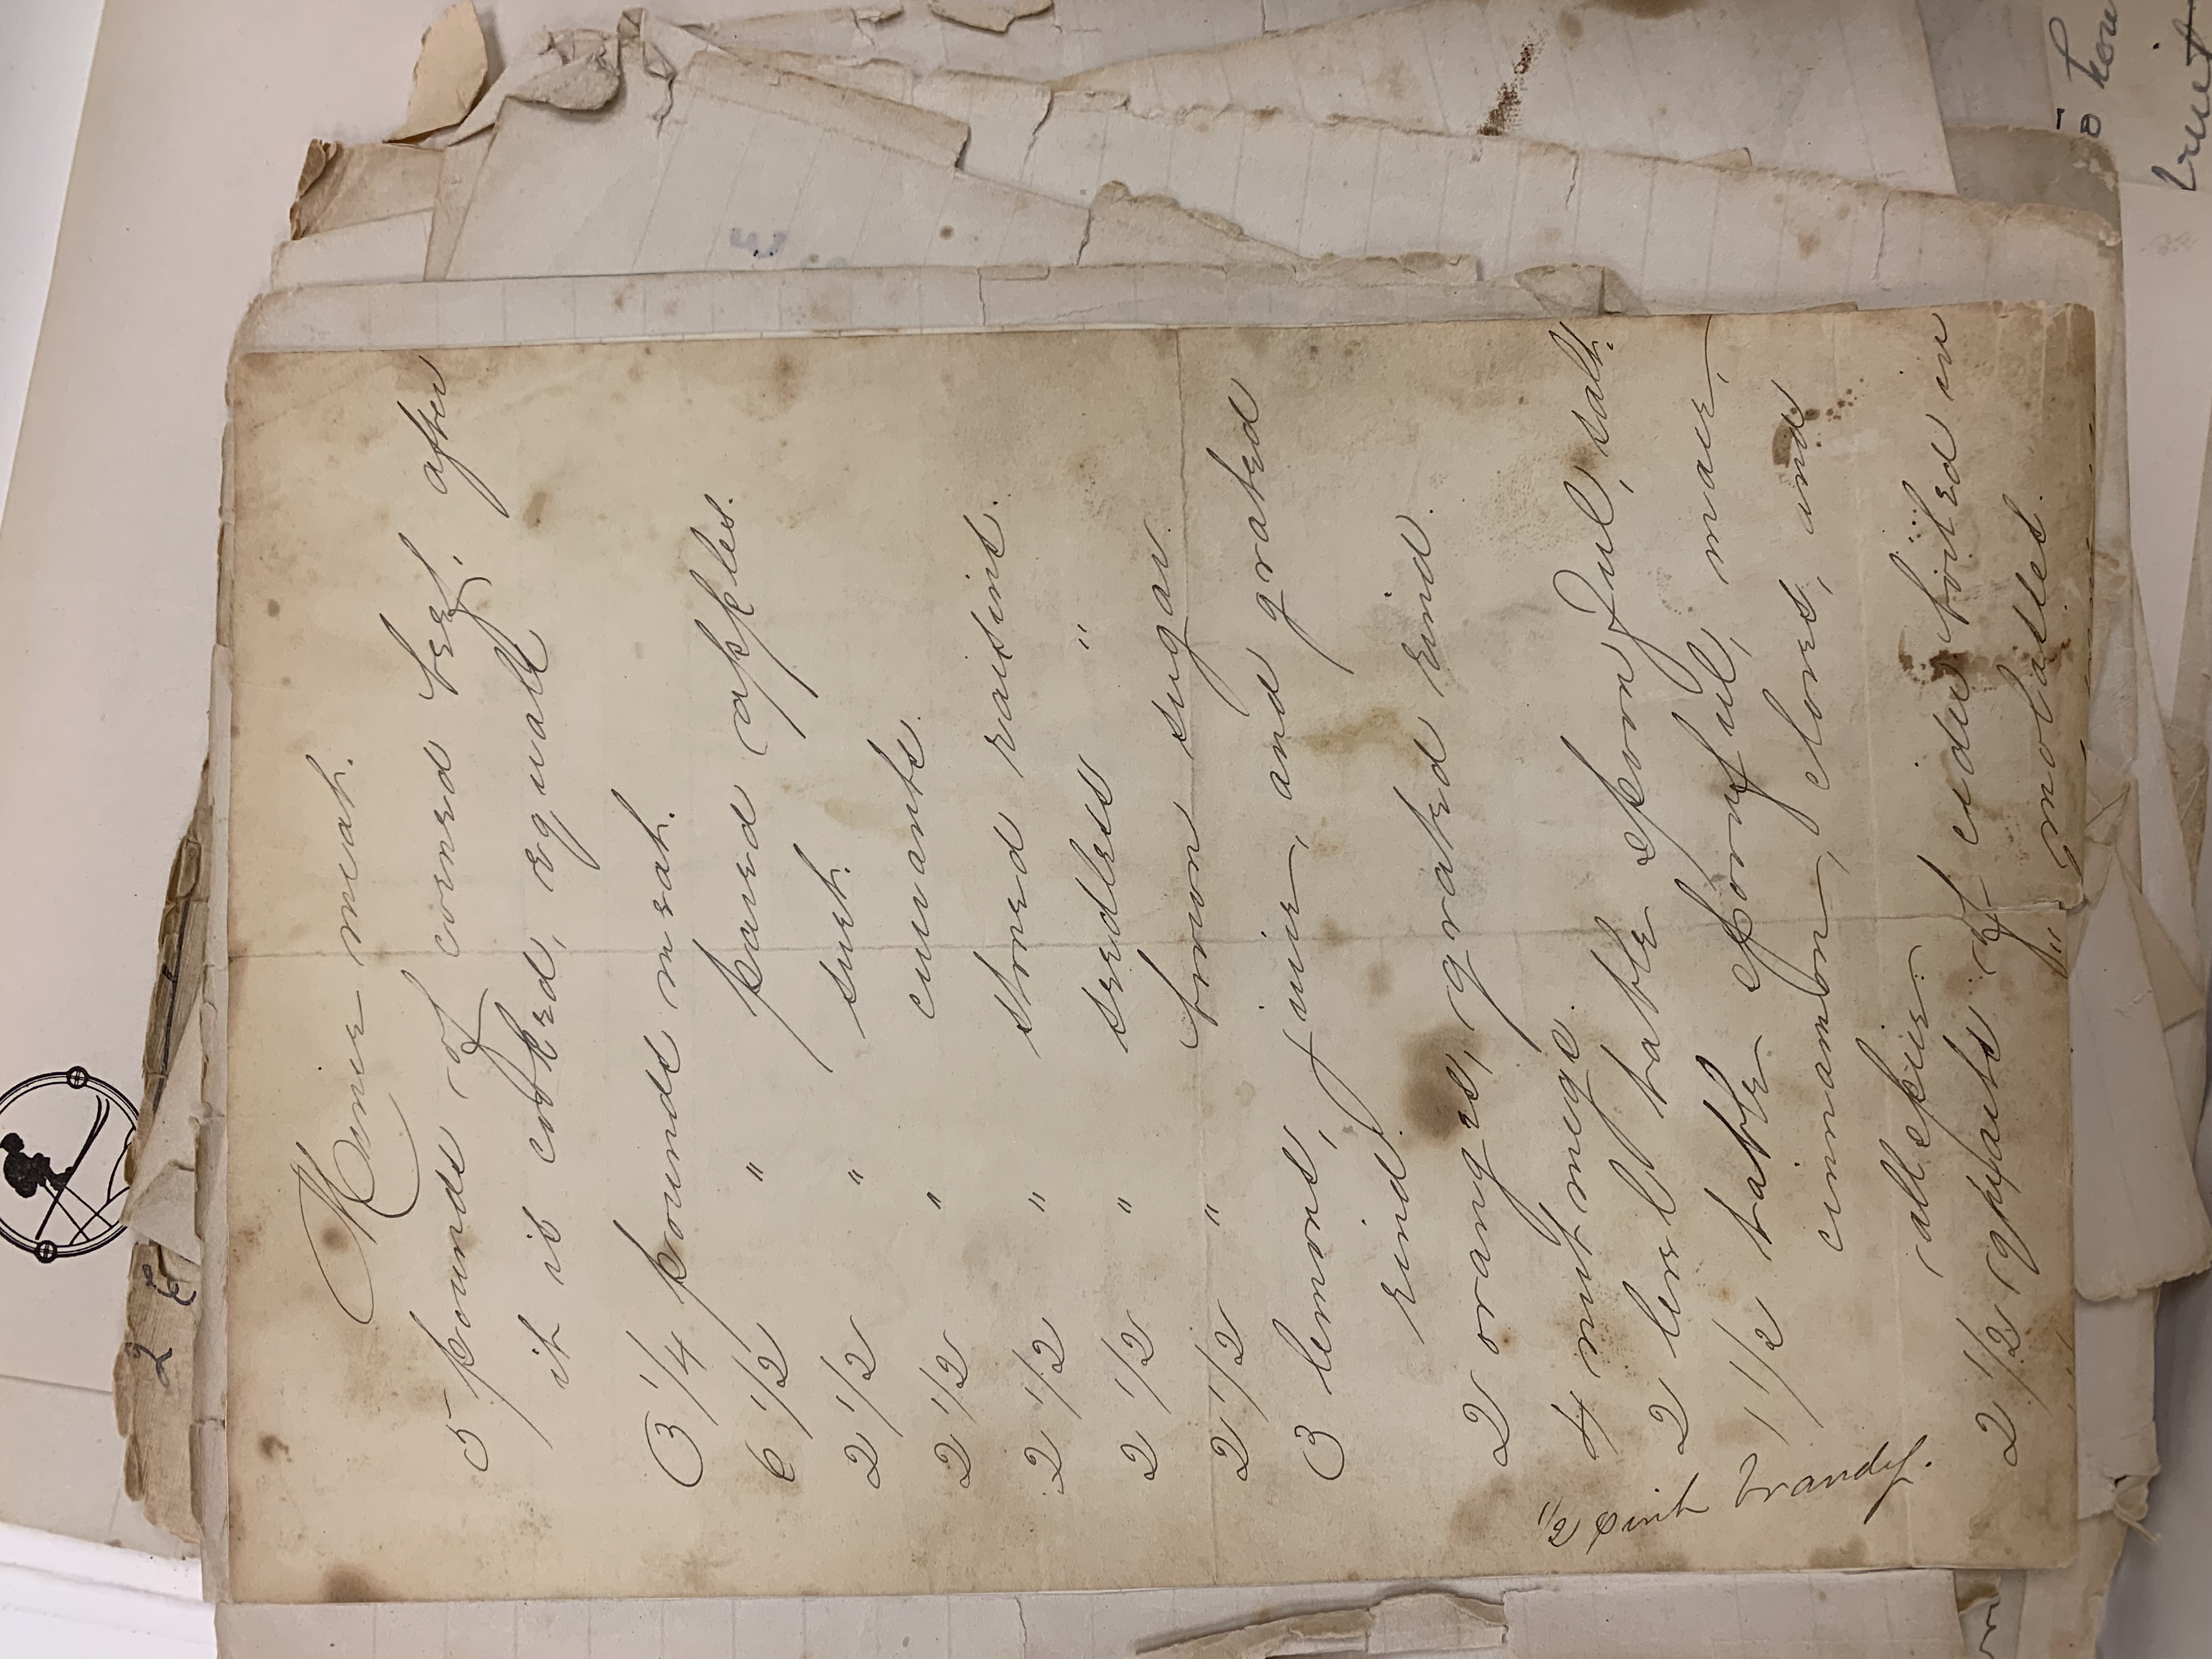 2 E
Mince meat.
5 pounds of corned beef, after
it is cooked, equals
3 1/4 pounds meat.
6 1/2 " pared apples.
2 1/2 " suet.
2 1/2 " currants.
2 1/2 " stoned raisins.
2 1/2 " seedless "
2 1/2 " brown sugar.
3 lemons, juice, and grated
rind.
2 oranges, grated rind.
4 nutmegs.
2 level table spoonful, salt.
1 1/2 table spoonful, mace,
cinnamon, cloves, and
allspice.
2 1/2 quarts of cider boiled in
" molasses.
1/2 pint brandy.